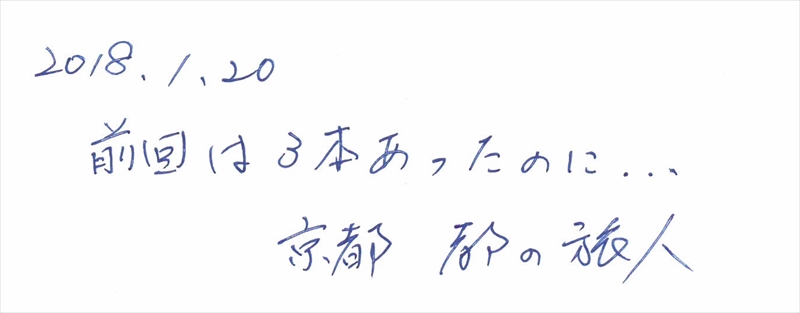 2018.1.20
前回は3本あったのに...
京都 都の旅人